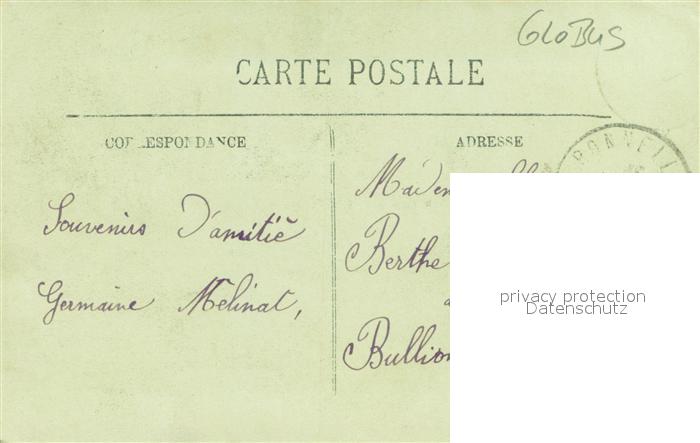 GLOBUS
CARTE POSTALE
CORRESPONDANCE
ADRESSE
BONNEVILL
Souvenirs D'amitié
Germaine Mélinat,
Madem
Berthe
a
Bullion
privacy protection
Datenschutz